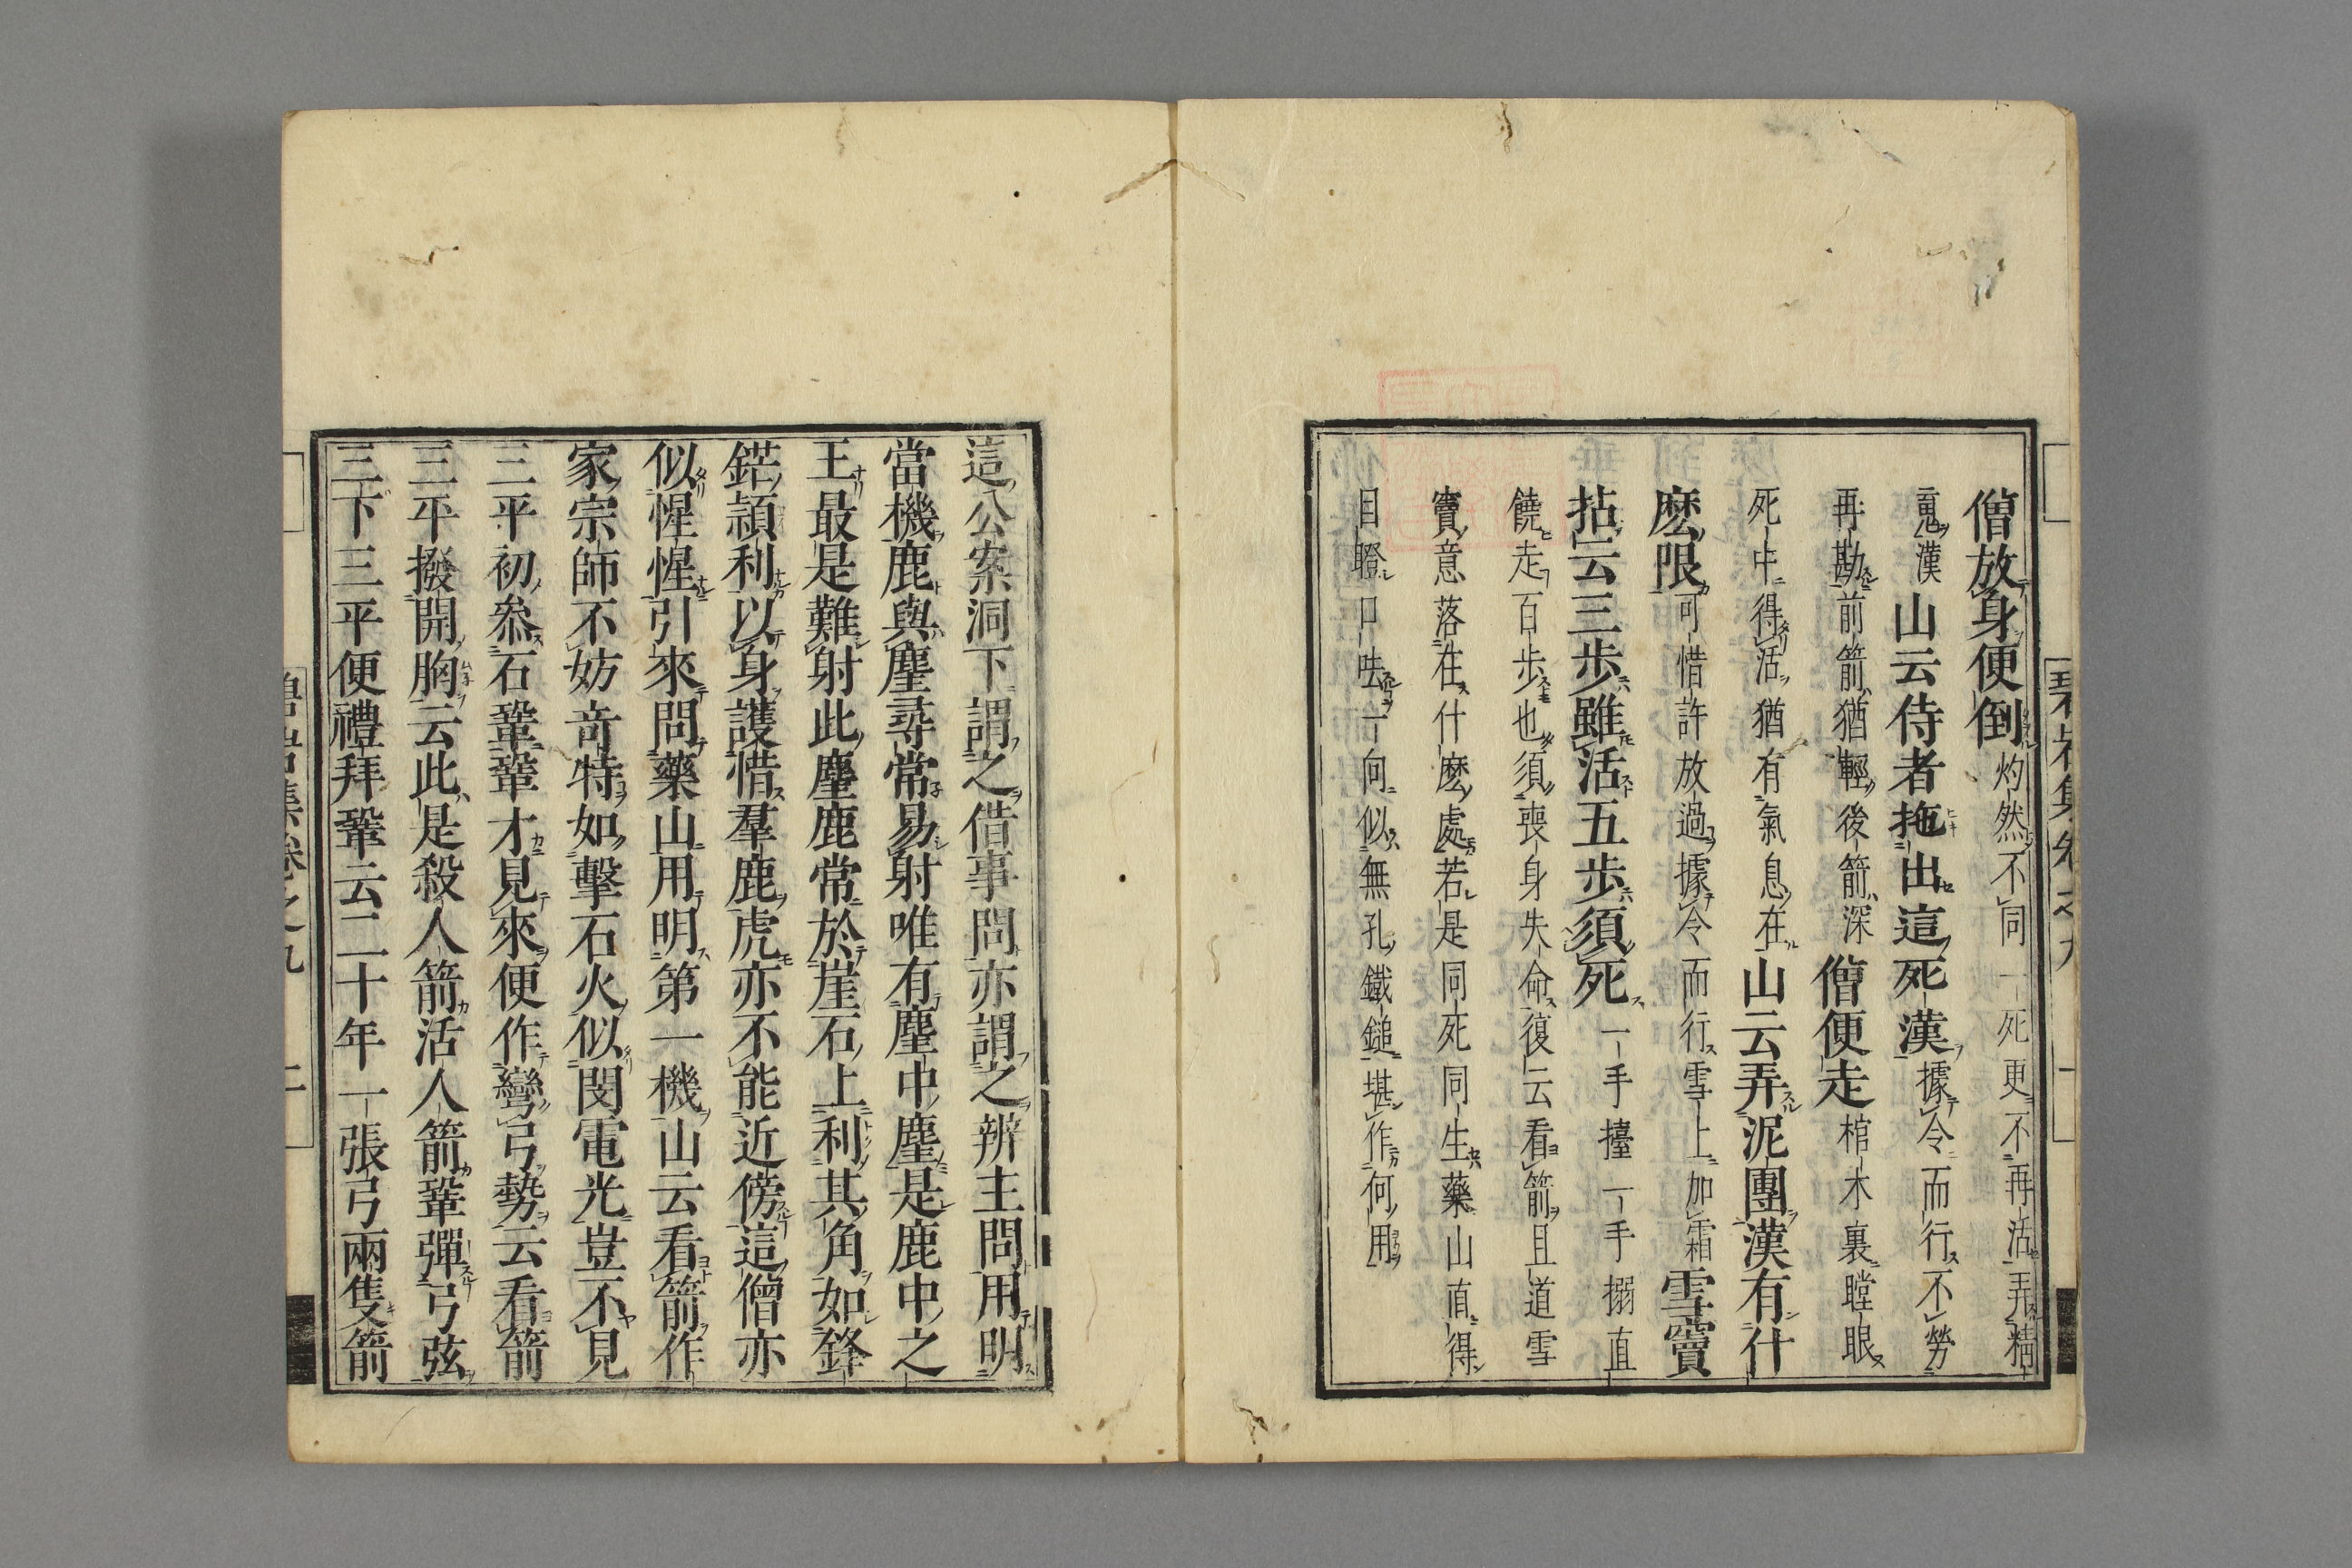 僧放身便倒灼然不同一死更不再活弄精
䰟漢山云侍者拖出這死漢據令而行不勞
再勘前箭猶輕後箭深僧便走棺木裏瞠眼
死中得活猶有氣息在山云弄泥團漢有什
麽限可惜許放過據令而行雪上加霜雪竇
拈云三歩雖活五歩須死一手擡一手搦直
饒走百歩也須喪身失命復云看箭且道雪
竇意落在什麽處若是同死同生藥山直得
目瞪口呿一向似無孔鐵鎚堪作何用
這公案洞下謂之借事問亦謂之辨主問用明
當機鹿與麈尋常易射唯有麈中麈是鹿中之
王最是難射此麈鹿常於崖石上利其角如鋒
鋩穎利以身護惜羣鹿虎亦不能近傍這僧亦
似惺惺引來問藥山用明第一機山云看箭作
家宗師不妨竒特如擊石火似閃電光豈不見
三平初叅石鞏鞏才見來便作彎弓勢云看箭
三平撥開胸云此是殺人箭活人箭鞏彈弓弦
三下三平便禮拜鞏云二十年一張弓兩隻箭